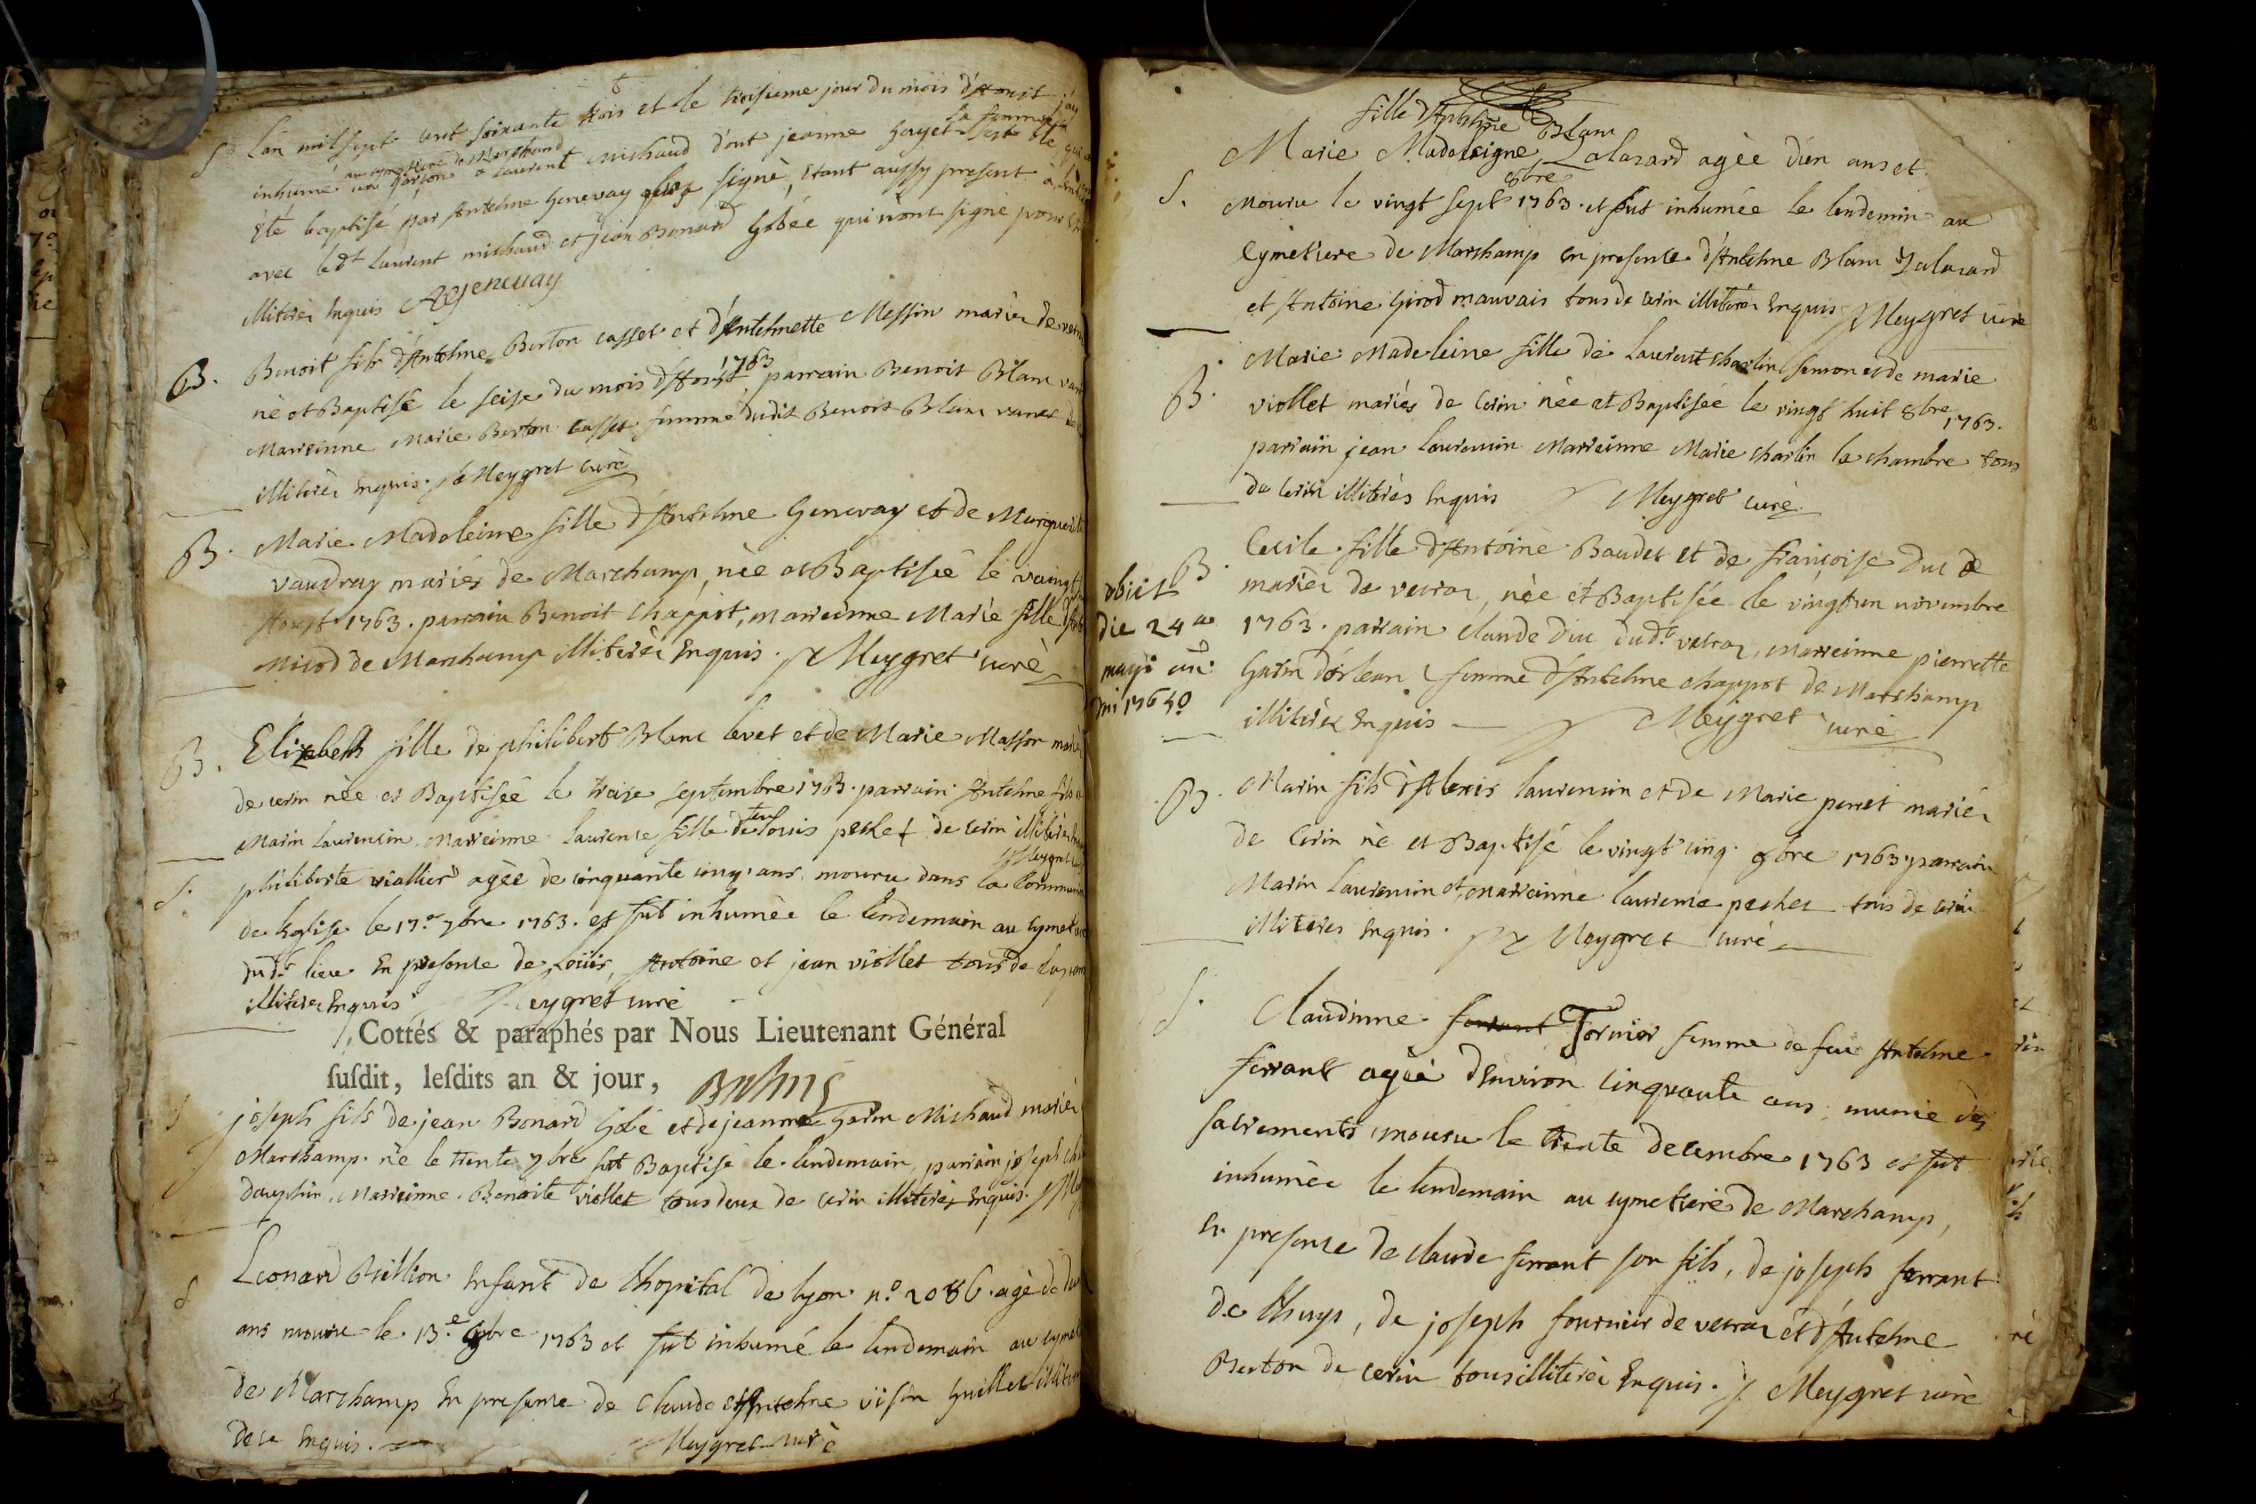 S. Lan mil sept cent soixante trois et le troisieme jour du mois d'Aoust j'ay
inhumé au cymetiere de Marchamp un garçon a laurent Michaud dont jeanne Goyet la femme
été baptisé par Antelme Genevay signè, étant aussy present
avec led.t laurent michaud et jean Bonard Gobée qui n'ont signé pour être
illiterès Enquis A Genevay
B. Benoit fils d'Antelme Berton casset et d'Antelmette Messin mariès de cerin
nè et Baptisé le seise du mois d'Aoust 1763 parrain Benoit Blanc
Marreinne Marie Berton casset femme dudit Benoit Blanc
illiterès Enquis. Meygret curè
B. Marie Madeleine fille d'Antelme Genevay et de Margueritte
vaudray mariés de Marchamp, née et Baptisée le vaingt
Aoust 1763. parrain Benoit Chappot, marreinne Marie fille
Nicod de Marchamp illiterès Enquis. Meygret curè
B. Elizabeth fille de philibert Blanc levet et de Marie Masson mariès
de cerin née et Baptisée le treise septembre 1763. parrain Antelme fils
Marin laurencin Marreinne laurence fille de feu louis peschet de cerin illiterès
Meygret
S. philiberte viallier agèe de cinquante cinq ans mouru dans la Communion
de leglise le 17.e 7bre 1763. et fut inhumèe le lendemain au cymetiere
dud.t lieu En presence de Loüis, Antoine et jean viollet tous de
illiteres Enquis Meygret curé
Cottés & paraphés par Nous Lieutenant Général
ſuſdit, leſdits an & jour,
joseph fils de jean Bonard Gobé et de jeanne Garin Michaud mariès
Marchamp. nè le trente 7bre fut Baptisé le lendemain, parrain joseph
dauphin, Marreinne Benoite viollet tous deux de cerin illiterès Enquis.
S Leonard Enfant de lhopital de lyon n.o 2086 agè de
ans mouru le 13.e 9bre 1763 et fut inhumé le lendemain au cymetiere
de Marchamp En presence de Claude et Antelme Guillet
Enquis. Meygret curè
fille d'Antelme Blanc
S. Marie Madeleigne Lalazard agèe d'un ans et
mouru le vingt sept 8bre 1763. et fut inhumée le lendemin au
Cymetiere de Marchamp en presence d'Antelme Blanc Lalazard
et Antoine Girod mauvais tous de cerin illiterès Enquis Meygret curé
B. Marie Madeleine fille de laurent charlin semon et de marie
viollet mariés de Cerin née et Baptisée le vingt huit 8bre 1763.
parrain jean laurencin Marreinne Marie charlin la chambre tous
de Cerin illiterès Enquis Meygret curè.
B. Cecile fille d'Antoine Baudet et de françoise Duc
mariès de vercraz, née et Baptisée le vingt un novembre
1763. parrain claude duc dud.t vercraz, Marreinne pierrette
Garin d'orlean femme d'Antelme chappot de Marchamp
illiterès Enquis Meygret curé
obiit
die 24.a
mayi an.
dni 1765.o
B. Marin fils d'Alexis laurencin et de Marie perret mariés
de Cerin né et Baptisé le vingt cinq 9bre 1763 parrain
Marin laurencin et marreinne laurence peschet tous de cerin
illiteres Enquis. Meygret curé
S. Claudinne ferrant Tornier femme de feu Antelme
ferrant agèe d'Environ cinquante ans munie des
sacrements mouru le trente decembre 1763 et fut
inhumèe le lendemain au cymetiere de Marchamp,
En presence de claude ferrant son fils, de joseph ferrant
de Chuys, de joseph fournier de vercraz et d'Antelme
Berton de cerin tous illiterès Enquis. Meygret curè